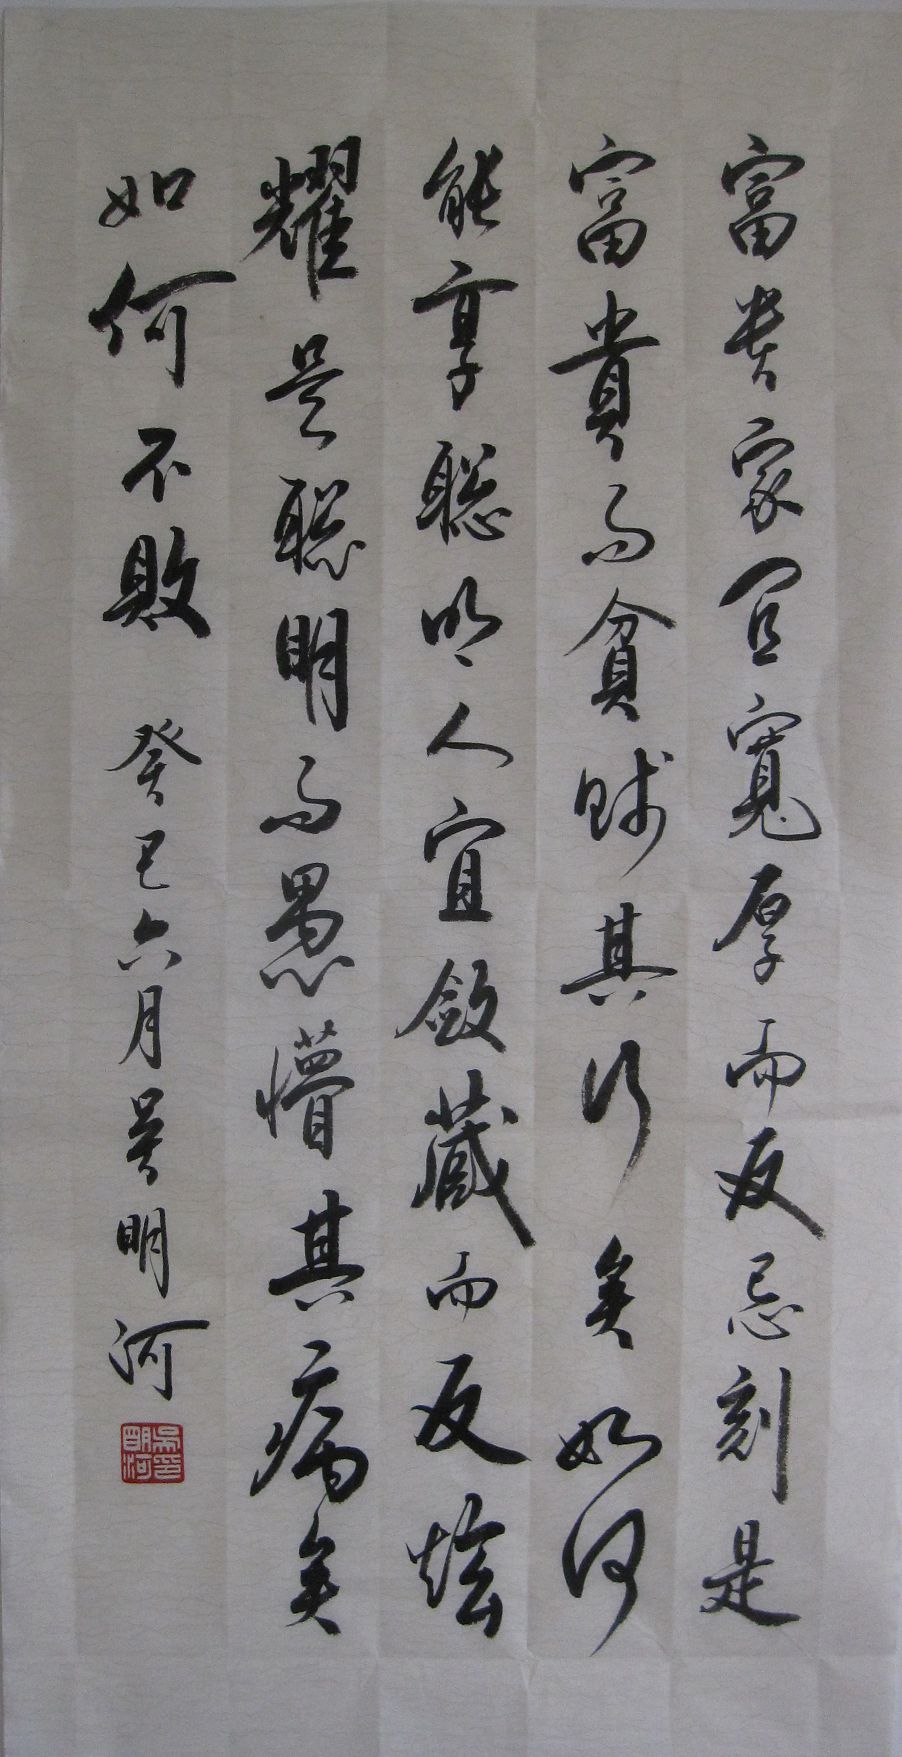 富贵家宜寬厚而反忌刻是
富貴而貧賤其行矣如何
能享聡明人宜斂藏而反炫
耀是聡明而愚懵其病矣
如何不敗 癸巳六月吴明河
吴印明河